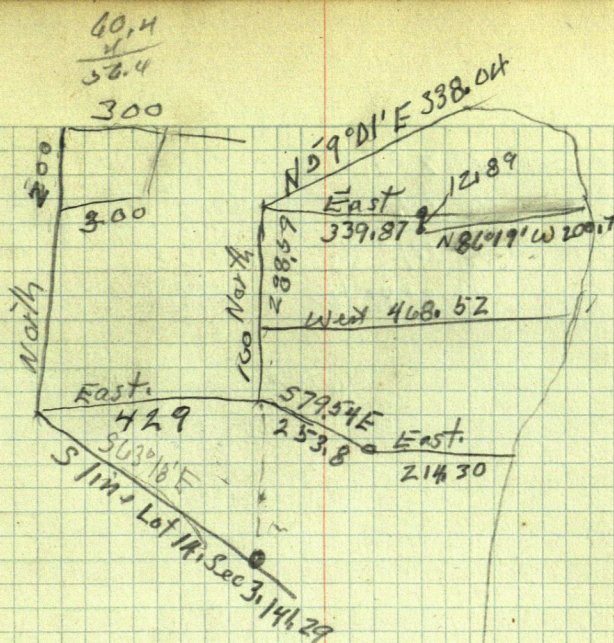 60.4
4
56.4
300
200
300
North
N 59°01' E 338.04
East
339.87
12.89
N 86°19' W 200.7
288.59
North
160
West 468.52
East.
429
S79.54E
253.8
East.
214.30
S63°18'E
S line Lot 14. Sec 3, 14, 29